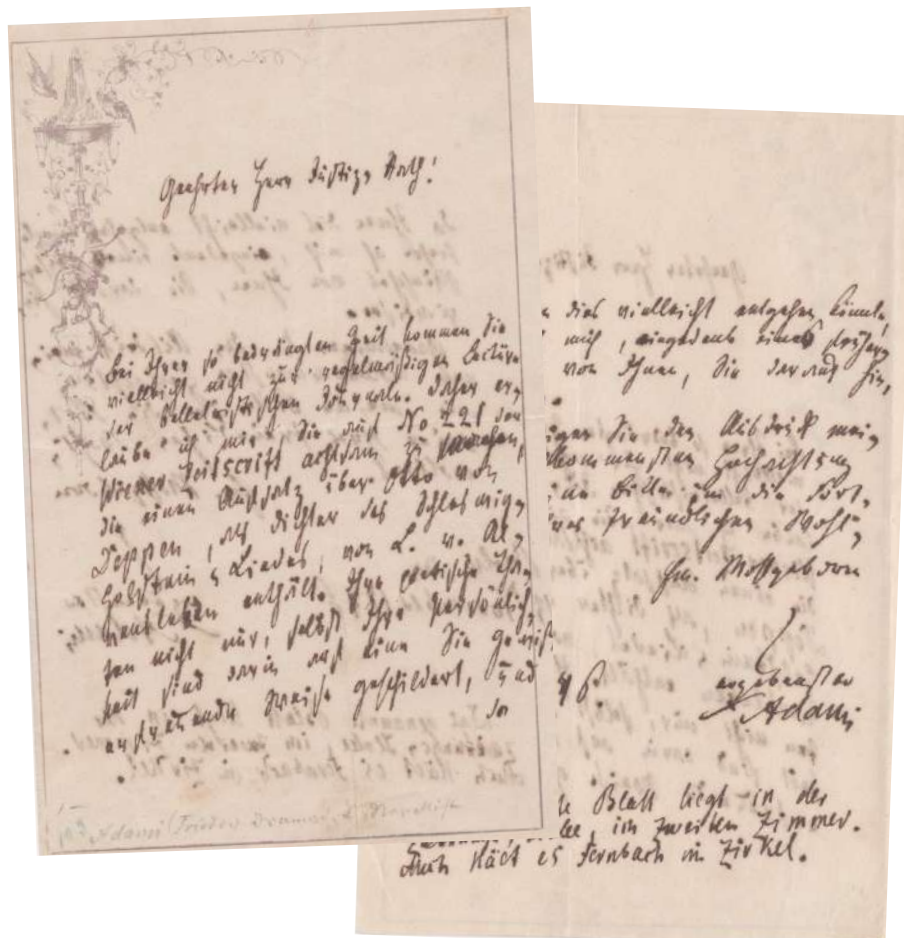 Geehrter Herr Justiz Rath!
Bei Ihrer so bedrängten Zeit kommen Sie
vielleicht nicht zur regelmäßigen Lectüre
der belletristischen Journale. Daher er,
laube ich mir, Sie auf No 221 der
Wiener Zeitscrift achtsam zu machen,
die einen Aufsatz über Otto von
Deppen, als Dichter des Schleswig,
Holstein's Liedes, von L. v. Al,
vensleben enthält. Ihre poetische Tha,
ten nicht nur, selbst Ihre Persönlich,
keit sind darin auf eine Sie gewiß
erfreuende Weise geschildert, und
da
Adami Friedr.
dies vielleicht entgehen könnte,
mich, eingedenk eines frühern
von Ihnen, Sie darauf hin,
Sie den Ausdruck mei,
kommensten Hochachtung
eine Bitte um die Fort,
Ihres freundlichen Wohl,
Ew. Wohlgeboren
ergebenster
F Adami
Blatt liegt in der
im zweiten Zimmer.
Auch hält es Fernbach im Zirkel.